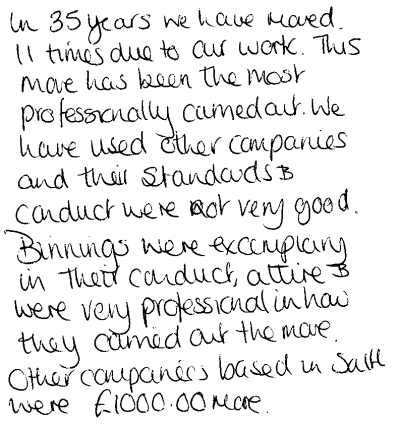 In 35 years we have moved.
11 times due to our work. This
move has been the most
professionally carried out. We
have used other companies
and their standards &
conduct were not very good.
Binnings were exemplary
in their conduct, attire &
were very professional in how
they carried out the move.
Other companies based in South
were £1000.00 more.